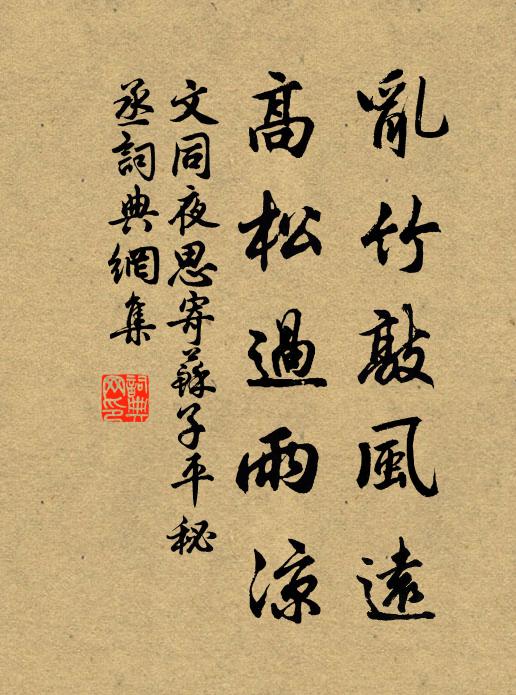 亂竹敲風遠
高松過雨涼
文同夜思寄蘇子平秘
丞詞典網集
詞典
网印